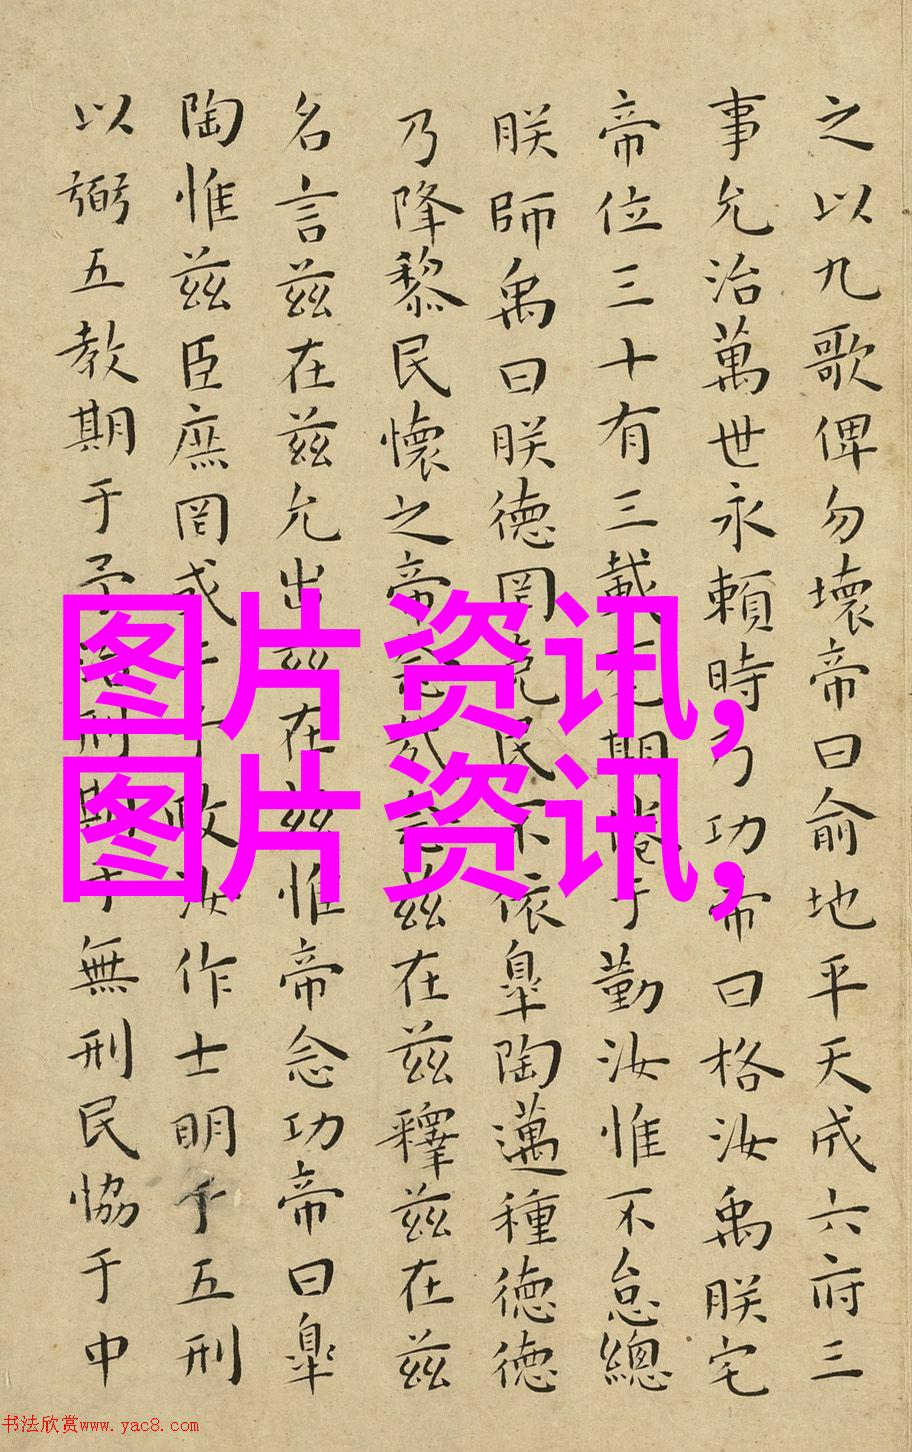 之以九歌俾勿壞帝曰俞地平天成六府三
事允治萬世永賴時乃功帝曰格汝禹朕宅
帝位三十有三載期惓于勤汝惟不怠總
朕師禹曰朕德罔克民不依臯陶邁種德德
乃降黎民懷之帝念哉念茲在茲釋茲在茲
名言茲在茲允出茲在茲惟帝念功帝曰臯
陶惟茲臣庶罔或干予政汝作士明于五刑
以弼五教期于予治刑期于無刑民協于中
图片资讯,
图片资讯,
书法欣赏www.yac8.com